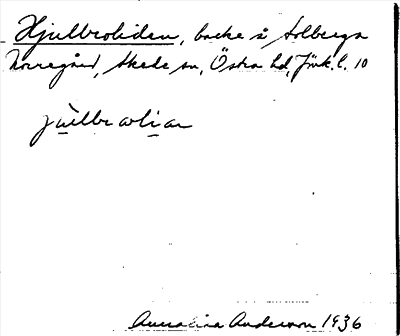 Hjulbroliden, backe å Solberga
Norregård, Skede sn, Östra hd, Jönk. l. 10
jùlbrolìan
Annalisa Andersson 1936